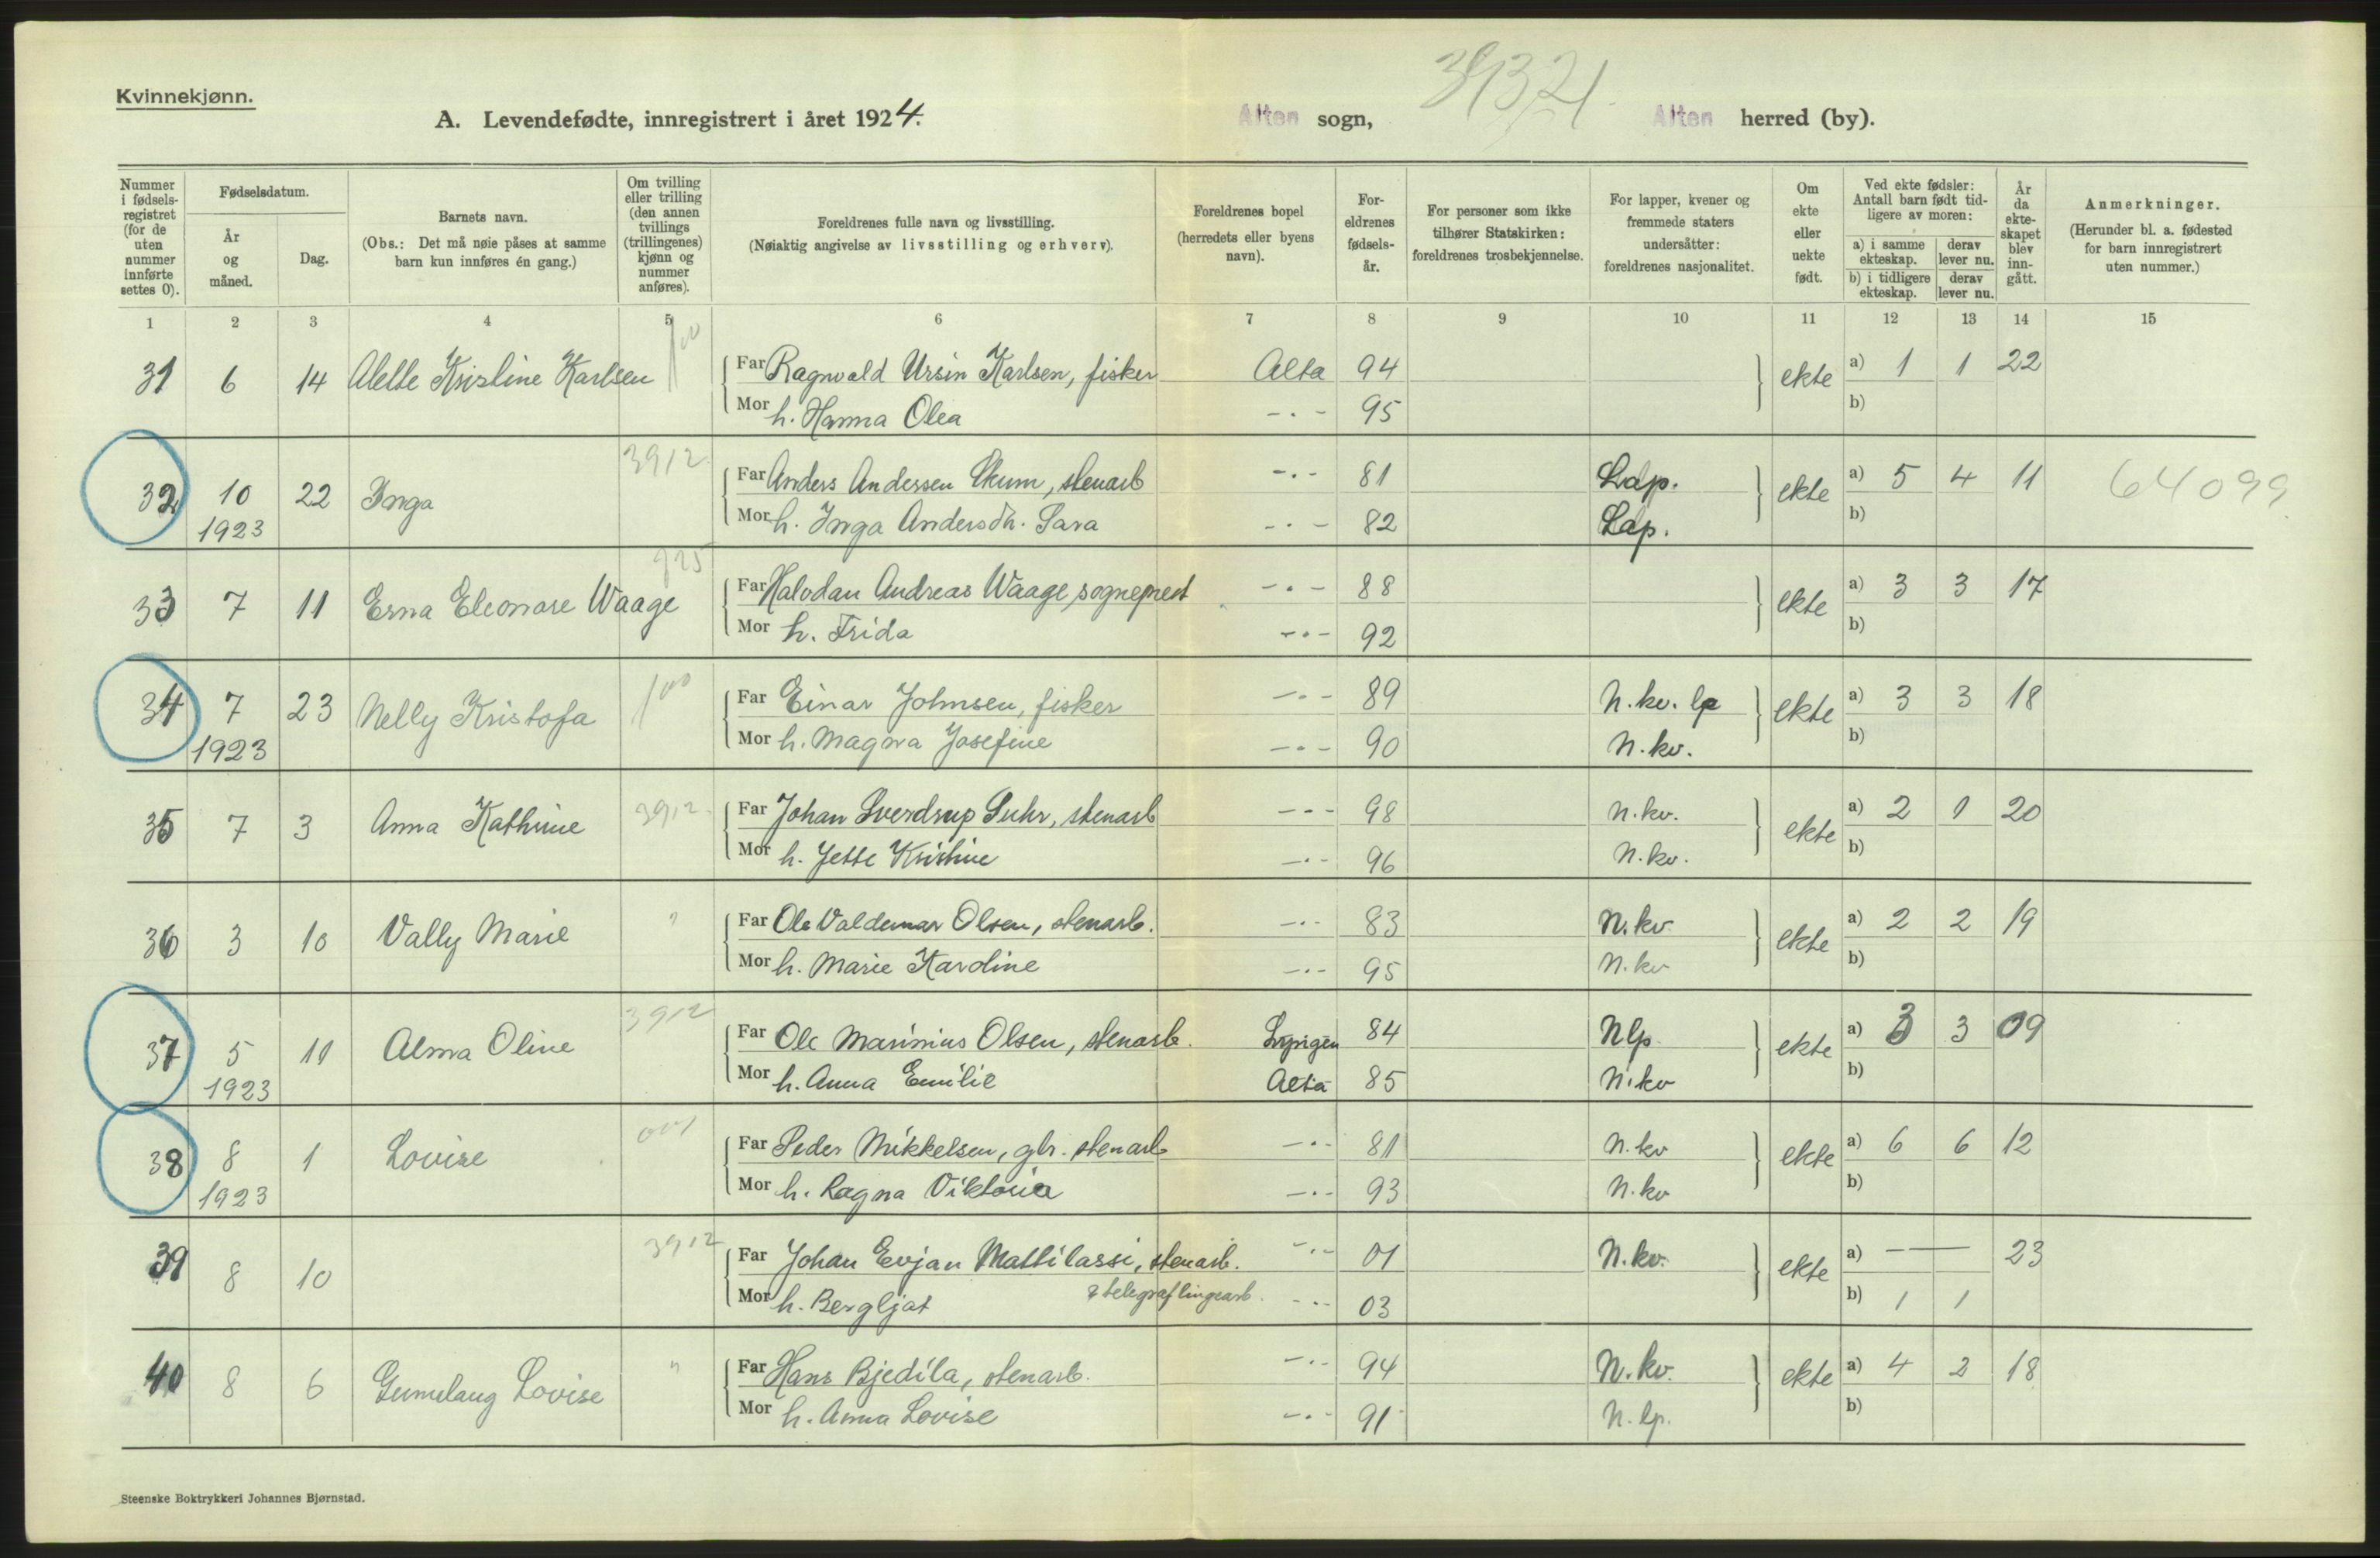 Kvinnekjønn.
39321
A. Levendefødte, innregistrert i året 1924. Alten sogn, Alten herred (by).
Nummer i fødsels-registret (for de uten nummer innførte settes 0).
Fødselsdatum.
År og måned.
Dag.
Barnets navn.
(Obs.: Det må nøie påses at samme barn kun innføres én gang.)
Om tvilling eller trilling (den annen tvillings (trillingenes) kjønn og nummer anføres).
Foreldrenes fulle navn og livsstilling.
(Nøiaktig angivelse av livsstilling og erhverv).
Foreldrenes bopel (herredets eller byens navn).
For-eldrenes fødsels-år.
For personer som ikke tilhører Statskirken: foreldrenes trosbekjennelse.
For lapper, kvener og fremmede staters undersåtter: foreldrenes nasjonalitet.
Om ekte eller uekte født.
Ved ekte fødsler: Antall barn født tid-ligere av moren:
a) i samme ekteskap. derav lever nu.
b) i tidligere ekteskap. derav lever nu.
År da ekte-skapet blev inn-gått.
Anmerkninger.
(Herunder bl. a. fødested for barn innregistrert uten nummer.)
1 2 3 4 5 6 7 8 9 10 11 12 13 14 15
31 6 14 Alette Kristine Karlsen Far Ragnvald Ursin Karlsen, fisker Alta 94 ekte a) 1 1 22
Mor h. Hanna Olea -.- 95 b)
3912
32 10 22 Inga Far Anders Andersen Skum, stenarb -.- 81 Lap. ekte a) 5 4 11 64099
1923 Mor h. Inga Andersdh. Sara -.- 82 Lap. b)
925
33 7 11 Erna Eleonore Waage Far Halvdan Andreas Waage, sogneprest -.- 88 ekte a) 3 3 17
Mor h. Frida -.- 92 b)
34 7 23 Nelly Kristofa Far Einar Johnsen, fisker -.- 89 N.kv. lp ekte a) 3 3 18
1923 Mor h. Magna Josefine -.- 90 N.kv. b)
35 7 3 Anna Kathrine 3912 Far Johan Sverdrup Suhr, stenarb -.- 98 N.kv. ekte a) 2 1 20
Mor h. Jette Kristine -.- 96 N.kv. b)
36 3 10 Vally Marie " Far Ole Valdemar Olsen, stenarb. -.- 83 N.kv ekte a) 2 2 19
Mor h. Marie Karoline -.- 95 N.kv b)
3912
37 5 11 Alma Oline Far Ole Marinius Olsen, stenarb. 84 Nlp. ekte a) 3 3 09
1923 Mor h. Anna Emilie Alta 85 N.kv b)
38 8 1 Lovise Far Peder Mikkelsen, gbr. stenarb -.- 81 N.kv ekte a) 6 6 12
1923 Mor h. Ragna Viktoria -.- 93 N.kv b)
3912
39 8 10 Far Johan Evjan Mattilassi, stenarb. -.- 01 N.kv. ekte a) — 23
Mor h. Bergljot & telegraflinjearb. -.- 03 b) 1 1
40 8 6 Gunnlaug Lovise " Far Hans Bjedila, stenarb. -.- 94 N.kv. ekte a) 4 2 18
Mor h. Anna Lovise -.- 91 N.lp. b)
Steenske Boktrykkeri Johannes Bjørnstad.